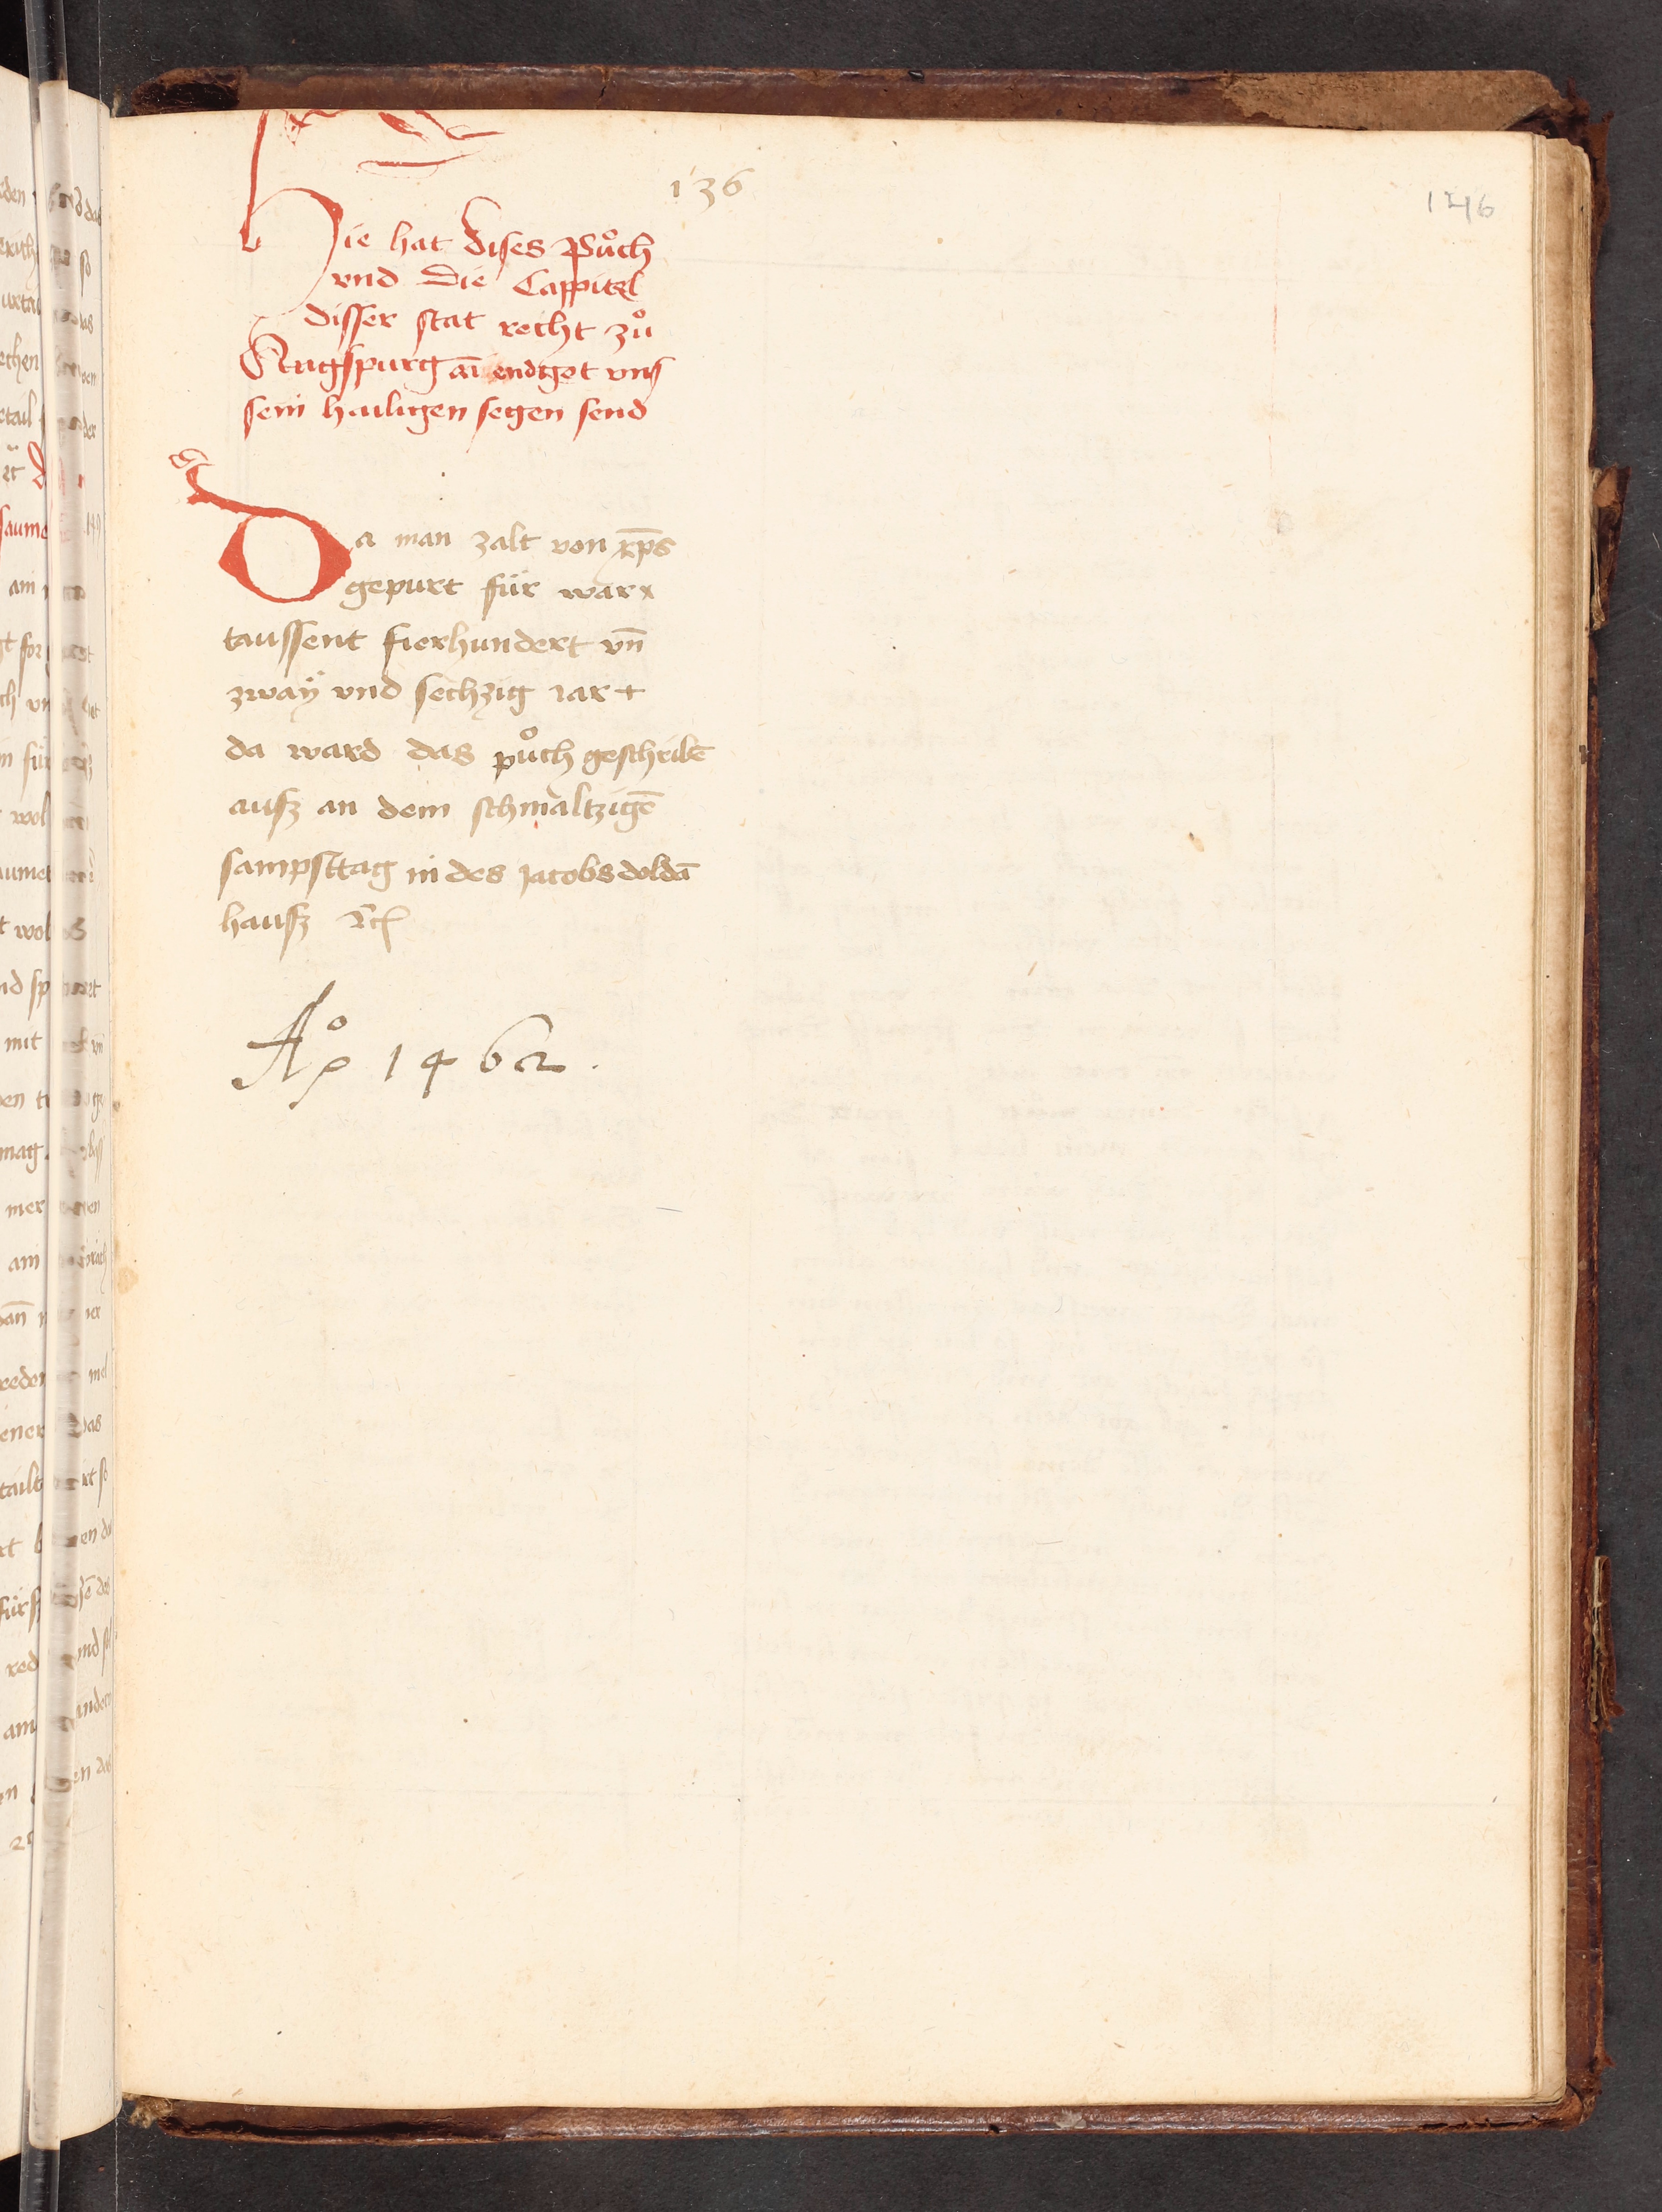 136
146
Hie hat dises Puͦch
vnd die Cappitel
disser stat recht zuͦ
Augspurg ain endt got vns
sein hailigen segen send
Da man zalt von xp̄s
gepurt für war x
taussent fierhundert vn̄
zwaÿ vnd sechzig iar +
da ward das puͦch geschribē
ausz an dem schmaltzigē
sampsttag in des jacobs doldā
hausz
Aº 1462.